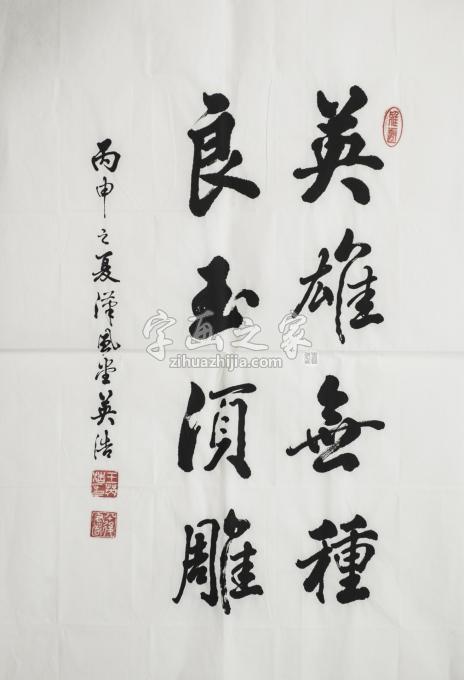 英雄無種
良玉須雕
丙申之夏漢風堂英浩
字画之家
zihuazhijia.com